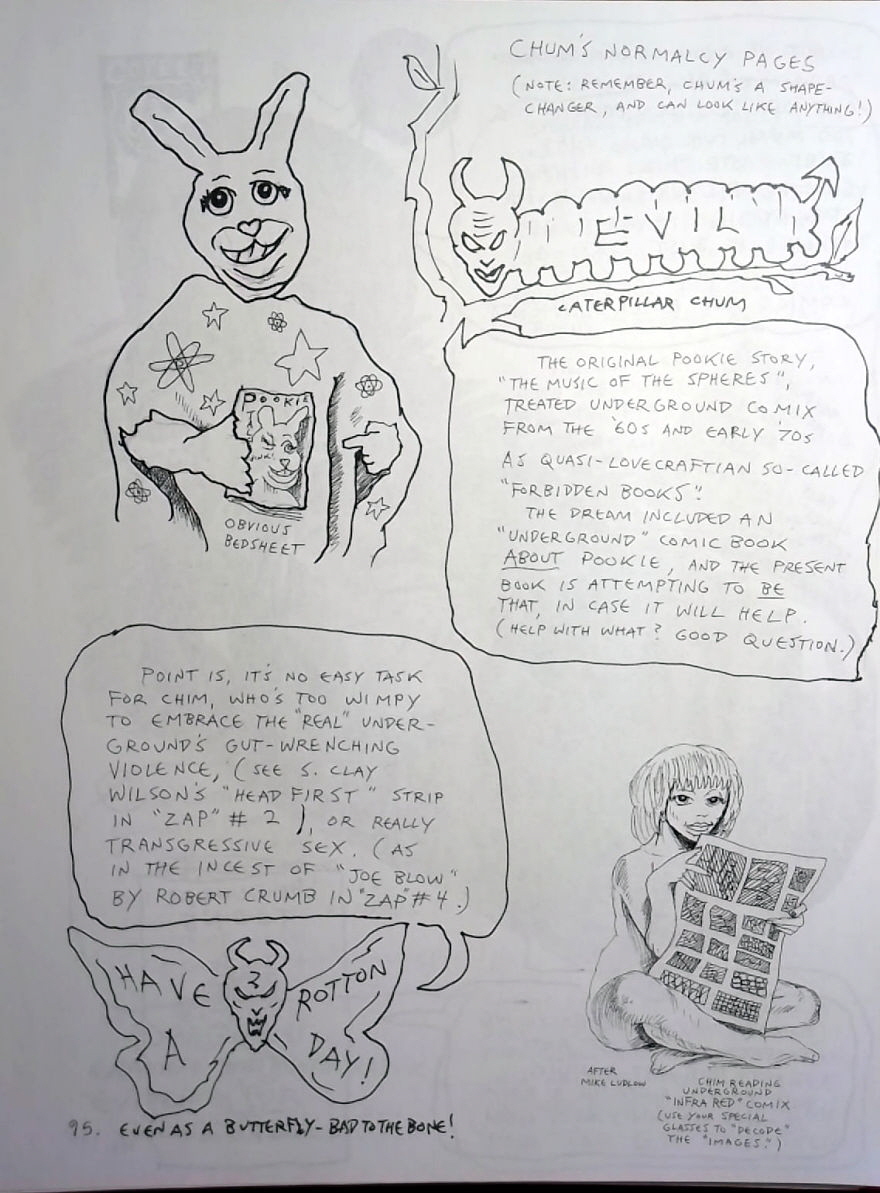 CHUM'S NORMALCY PAGES
(NOTE: REMEMBER, CHUM'S A SHAPE-
CHANGER, AND CAN LOOK LIKE ANYTHING!)
E-VIL
CATERPILLAR CHUM
POOKIE
OBVIOUS
BEDSHEET
THE ORIGINAL POOKIE STORY,
"THE MUSIC OF THE SPHERES",
TREATED UNDERGROUND COMIX
FROM THE '60s AND EARLY '70s
AS QUASI-LOVECRAFTIAN SO-CALLED
"FORBIDDEN BOOKS".
THE DREAM INCLUDED AN
"UNDERGROUND" COMIC BOOK
ABOUT POOKIE, AND THE PRESENT
BOOK IS ATTEMPTING TO BE
THAT, IN CASE IT WILL HELP.
(HELP WITH WHAT? GOOD QUESTION.)
POINT IS, IT'S NO EASY TASK
FOR CHIM, WHO'S TOO WIMPY
TO EMBRACE THE "REAL" UNDER-
GROUND'S GUT-WRENCHING
VIOLENCE, (SEE S. CLAY
WILSON'S "HEAD FIRST" STRIP
IN "ZAP" # 2), OR REALLY
TRANSGRESSIVE SEX. (AS
IN THE INCEST OF "JOE BLOW"
BY ROBERT CRUMB IN "ZAP" # 4.)
HAVE
A
ROTTON
DAY!
AFTER
MIKE LUDLOW
CHIM READING
UNDERGROUND
"INFRA RED" COMIX
(USE YOUR SPECIAL
GLASSES TO "DECODE"
THE "IMAGES.")
95. EVEN AS A BUTTERFLY - BAD TO THE BONE!